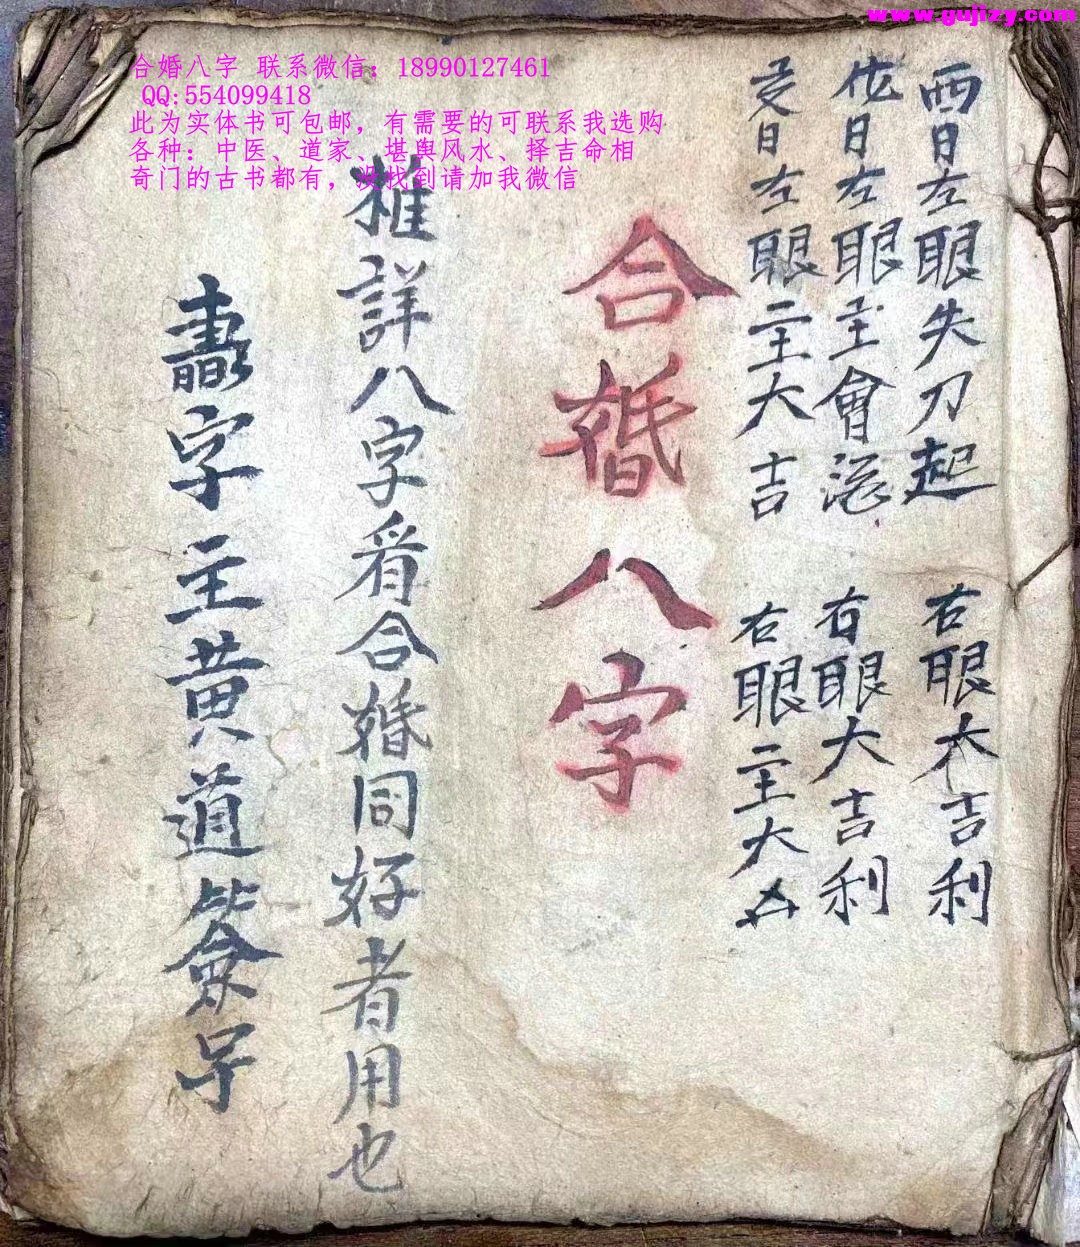 www.gujizy.com
合婚八字 联系微信：18990127461
QQ:554099418
此为实体书可包邮，有需要的可联系我选购
各种：中医、道家、堪舆风水、择吉命相
奇门的古书都有，没找到请加我微信
日左眼失刀起 右眼大吉利
日左眼主會 右眼大吉利
日左眼主大吉 右眼主大凶
合婚八字
推詳八字看合婚同好者用也
字主黄道